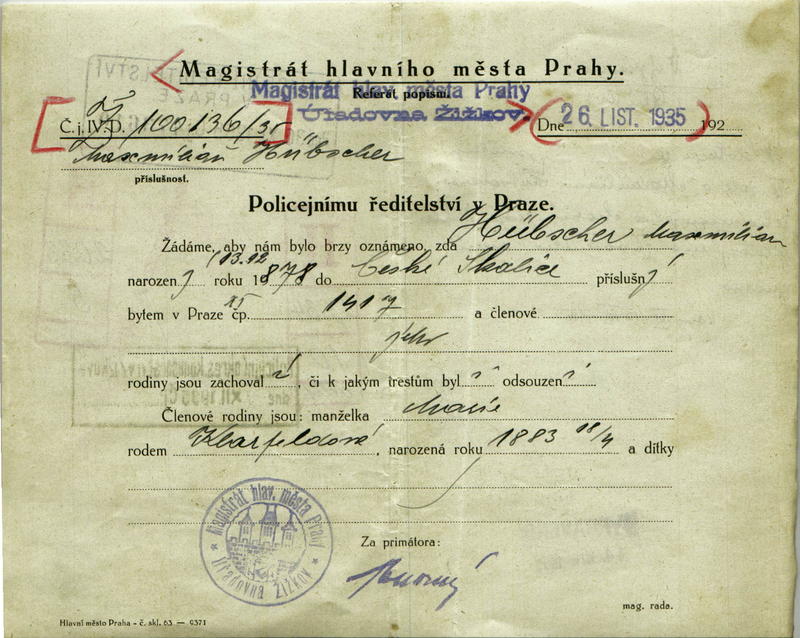 Magistrát hlavního města Prahy.
Referát popisní.
Magistrát hlav. města Prahy
Úřadovna Žižkov.
Č. j. IV.-D. 100136/35
Dne 26. LIST. 1935 192
Maxmilian Hübscher
příslušnost.
Policejnímu ředitelství v Praze.
Žádáme, aby nám bylo brzy oznámeno, zda Hübscher Maxmilian
narozený roku 1878 do České Skalice příslušný
bytem v Praze XI čp. 1417 a členové
jeho
rodiny jsou zachoval i, či k jakým trestům byl i odsouzen i
Členové rodiny jsou: manželka Marie
rodem Klarfeldová, narozená roku 1883 18/4 a dítky
Magistrát hlav. města Prahy
Úřadovna ŽIŽKOV
Za primátora:
mag. rada.
Hlavní město Praha - č. skl. 63 — 9371